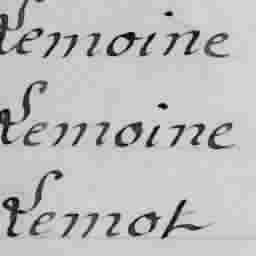 Lemoine
Lemoine
Lemot